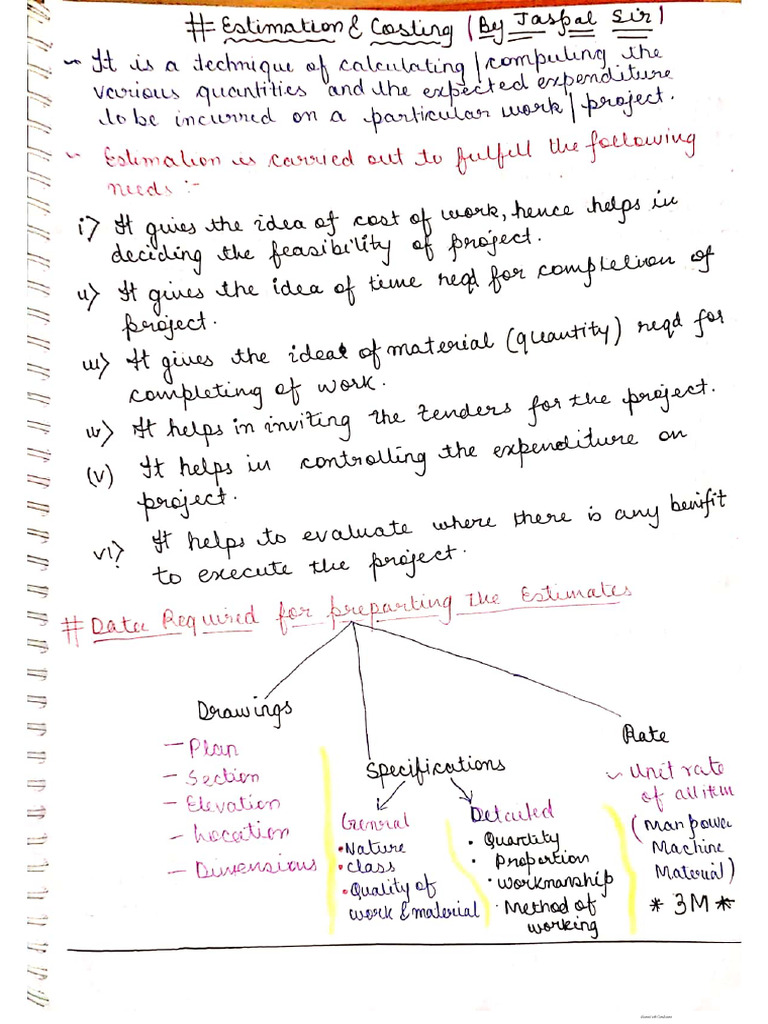 # Estimation & Costing (By Jaspal Sir)
~ It is a technique of calculating/computing the
various quantities and the expected expenditure
to be incurred on a particular work/project.
~ Estimation is carried out to fulfill the following
needs :-
i) It gives the idea of cost of work, hence helps in
deciding the feasibility of project.
ii) It gives the idea of time reqd for completion of
project.
iii) It gives the idea of material (quantity) reqd for
completing of work.
iv) It helps in inviting the tenders for the project.
(v) It helps in controlling the expenditure on
project.
vi) It helps to evaluate where there is any benifit
to execute the project.
# Data Required for preparting the Estimates
Drawings
- Plan
- Section
- Elevation
- Location
- Dimensions
Specifications
General
• Nature
• Class
• Quality of
work & material
Detailed
• Quantity
• Proportion
• Workmanship
• Method of
working
Rate
~ Unit rate
of all item
(Man power
Machine
Material)
* 3M *